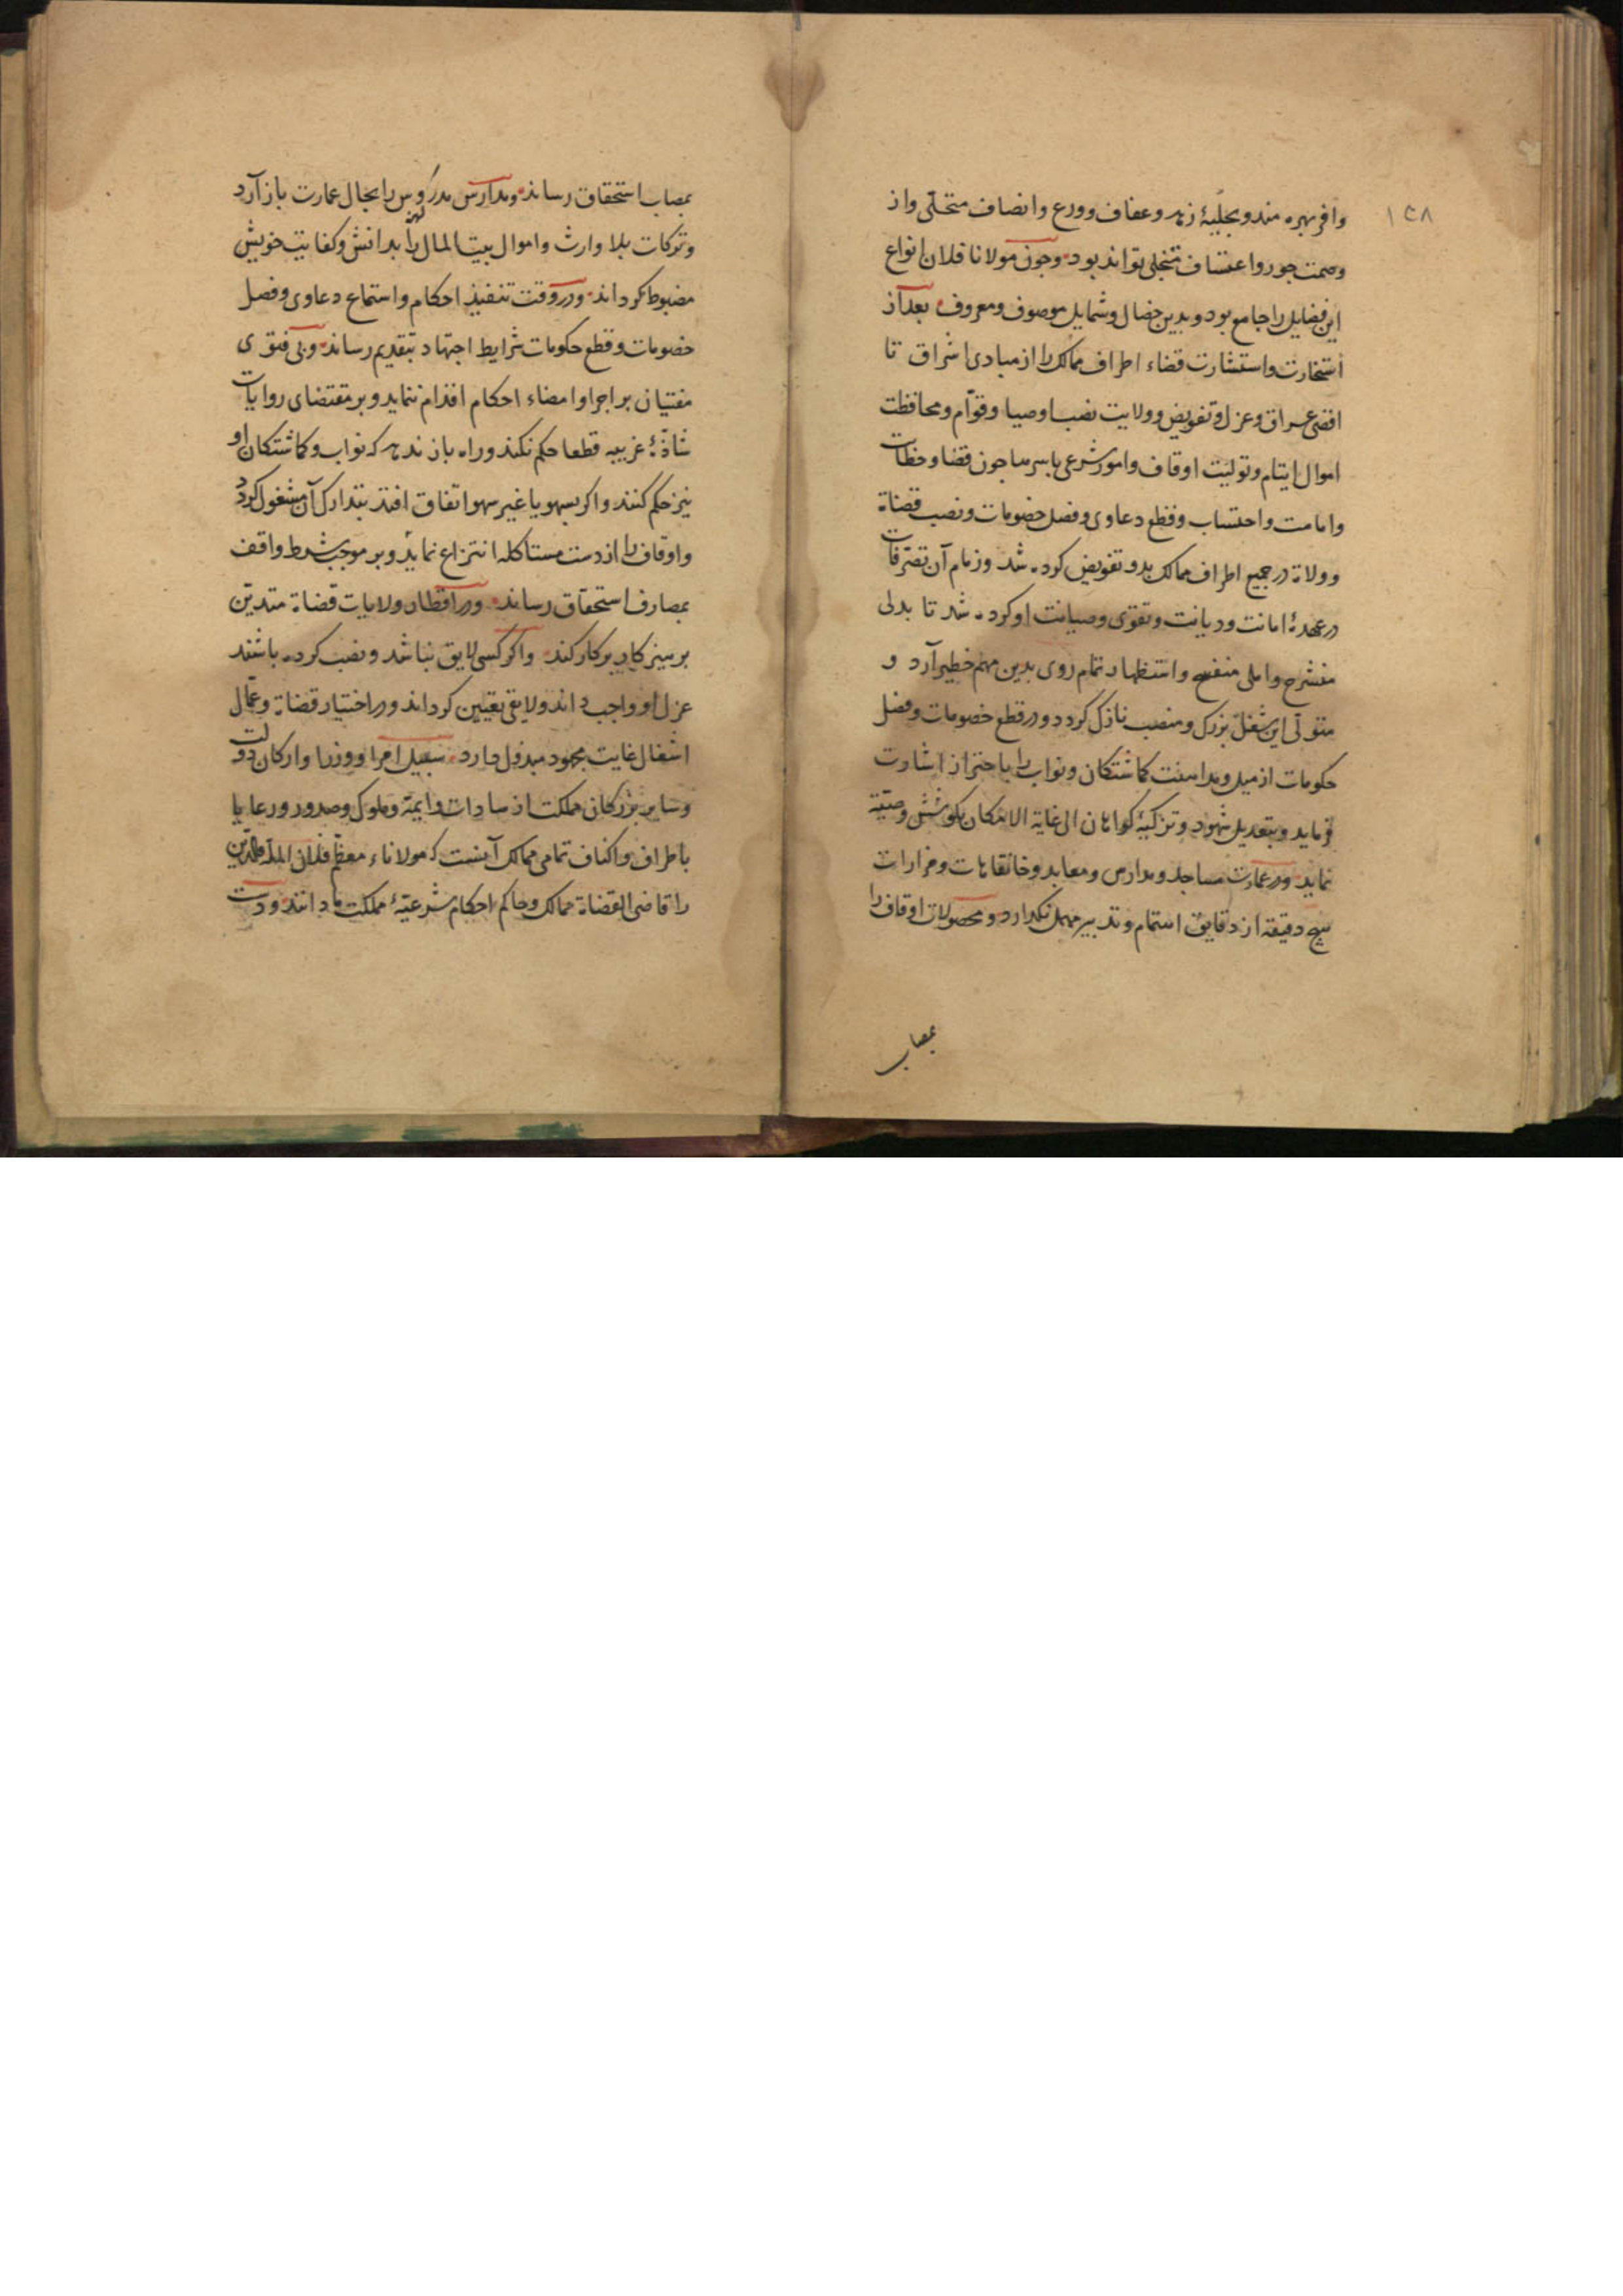 ۱۵۸
وافر بهره مند و بحلیهٔ زهد و عفاف و ورع و انصاف متحلّی و از
وصمت جور و اعتساف متجلی تواند بود و جون مولانا فلان انواع
این فضایل را جامع بود و بدین خصال و شمایل موصوف و معروف بعد از
استخارت و استشارت قضاء اطراف ممالک را از مبادی اشراق تا
اقصی عراق و عزل و تفویض و ولایت نصب اوصیا و قوّام و محافظت
اموال ایتام و تولیت اوقاف و امور شرعی باسرها جون قضا و خطابت
و امامت و احتساب و قطع دعاوی و فصل خصومات و نصب قضاة
و ولاة در جمیع اطراف ممالک بدو تفویض کرده شد و زمام آن تصرّفات
در عهدهٔ امانت و دیانت و تقوی و صیانت او کرده شد تا بدلی
منشرح و املی منفسح و استظهار تمام روی بدین مهم خطیر آرد و
متولّی این شغل بزرک و منصب نازک کردد و در قطع خصومات و فصل
حکومات از میل و مداهنت کماشتکان و نواب را باحتراز اشارت
فرماید و بتعدیل شهود و تزکیهٔ کواهان الی غایة الامکان بکوشش وصیّة
نماید و در عمارت مساجد و مدارس و معابد و خانقاهات و مزارات
هیچ دقیقه از دقایق اهتمام و تدبیر مهمل نکذارد و محصولات اوقاف را
بمصاب
بمصاب استحقاق رساند و مدارس مدروس را بحال عمارت باز آرد
و ترکات بلا وارث و اموال بیت المال را بدانش و کفایت خویش
مضبوط کرداند و در وقت تنفیذ احکام و استماع دعاوی و فصل
خصومات و قطع حکومات شرایط اجتهاد بتقدیم رساند و بی فتوی
مفتیان بر اجرا و امضاء احکام اقدام ننماید و بر مقتضای روایات
شاذّهٔ غریبه قطعا حکم نکند و راه باز ندهد که نواب و کماشتکان او
نیز حکم کنند و اکر بسهو یا غیر سهو اتفاق افتد بتدارک آن مشغول کردد
و اوقاف را از دست مستاکله انتزاع نماید و بر موجب شرط واقف
بمصارف استحقاق رساند و در اقطار ولایات قضاة متدیّن
برهیزکار بر کار کند و اکر کسی لایق نباشد و نصب کرده باشند
عزل او واجب داند و لایقی تعیین کرداند و در اختیار قضاة و عمّال
اشغال غایت مجهود مبذول دارد سبیل امرا و وزرا و ارکان دولت
و سایر بزرکان مملکت از سادات و ایمّه و ملوک و صدور و رعایا
باطراف و اکناف تمامی ممالک آنست که مولاناء معظّم فلان الملّة والدّین
را قاضی القضاة ممالک و حاکم احکام شرعیّهٔ مملکت ما دانند و دست